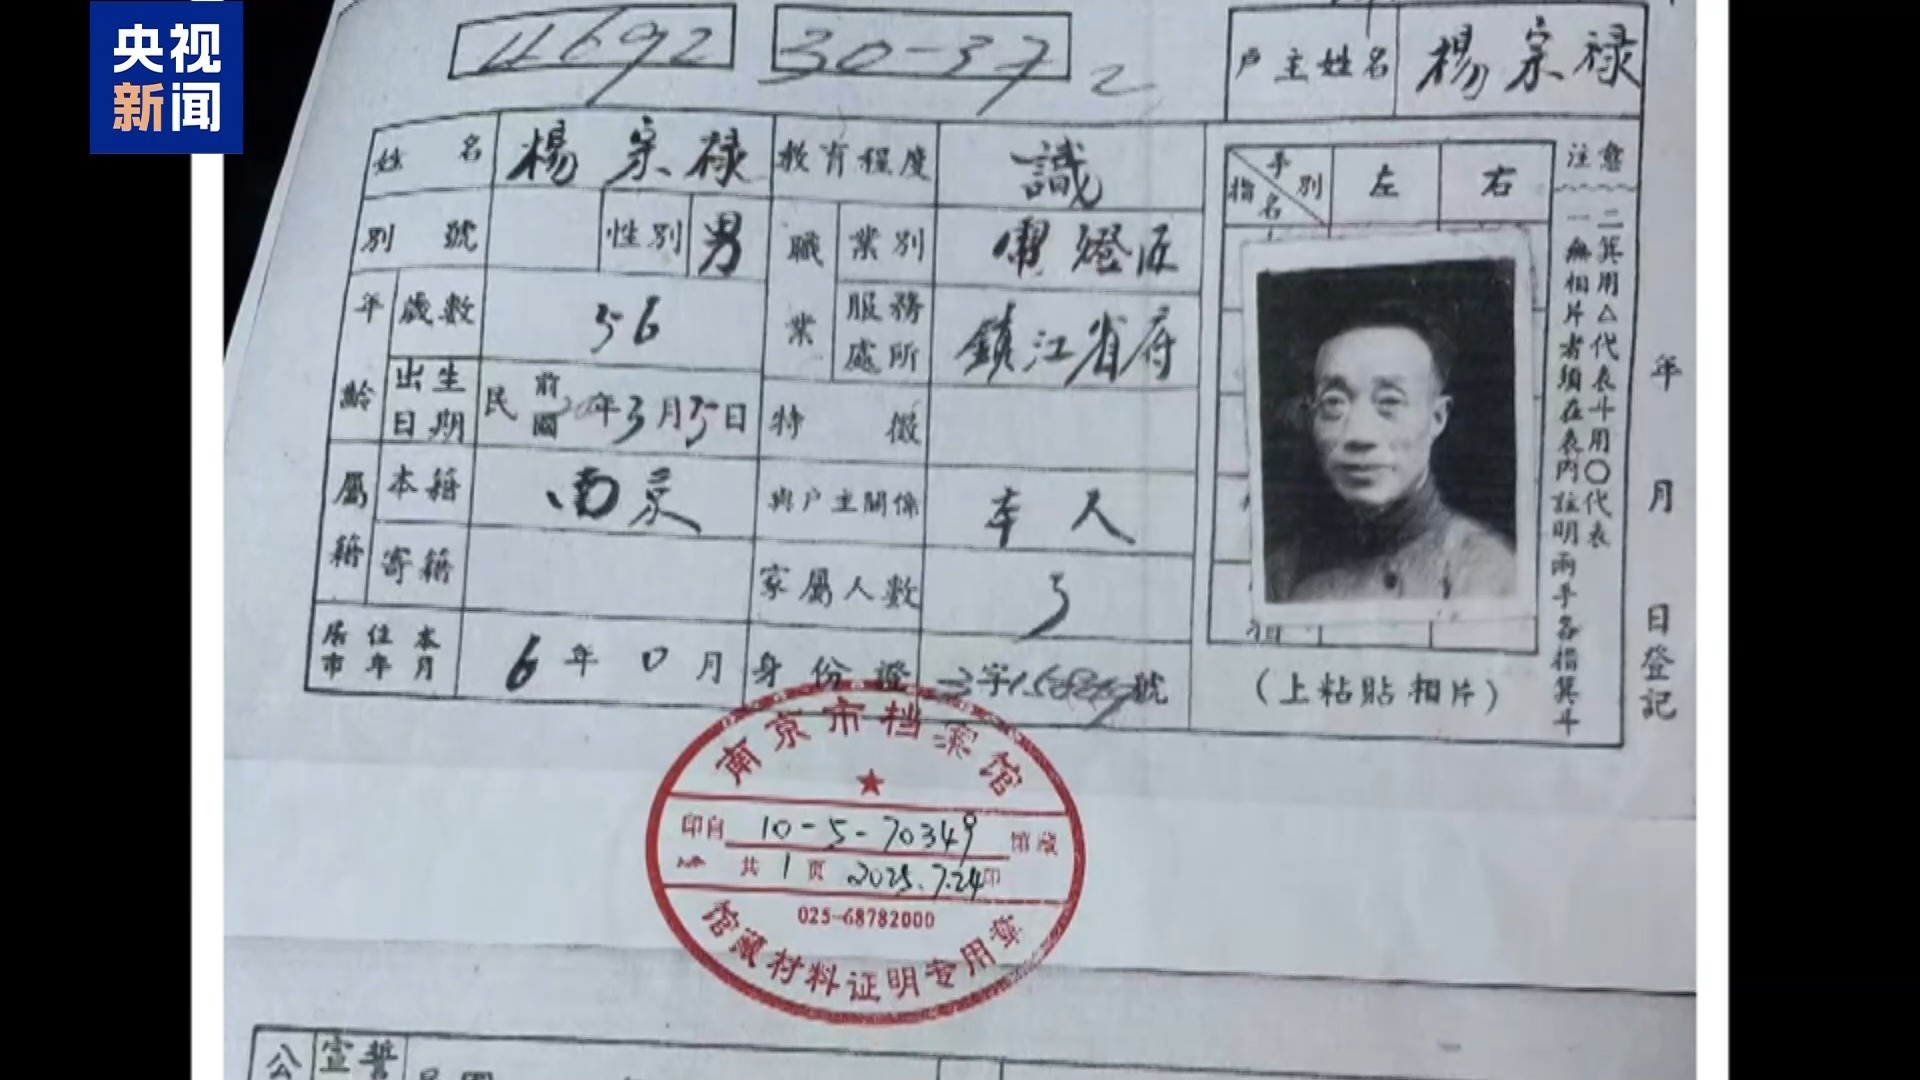 央视
新闻
11692
30-37
2
户主姓名 楊宗禄
姓名 楊宗禄 教育程度 識
別號 性別 男 職業 業別 燈匠
年齡 歲數 56 服務處所 鎮江省府
出生日期 民國前 年3月 日 特徵
屬籍 本籍 南京 與户主關係 本人
寄籍 家屬人數 3
居住本市年月 6年0月 身份證 字 號
手別 指名 左 右
(上粘貼相片)
注意
一無相片者須在表內註明兩手各指箕斗
二箕用△代表斗用○代表
年 月 日登記
南京市档案馆
印自 10-5-70349 馆藏
共1页 2025.7.24印
025-68782000
馆藏材料证明专用章
公 宣誓